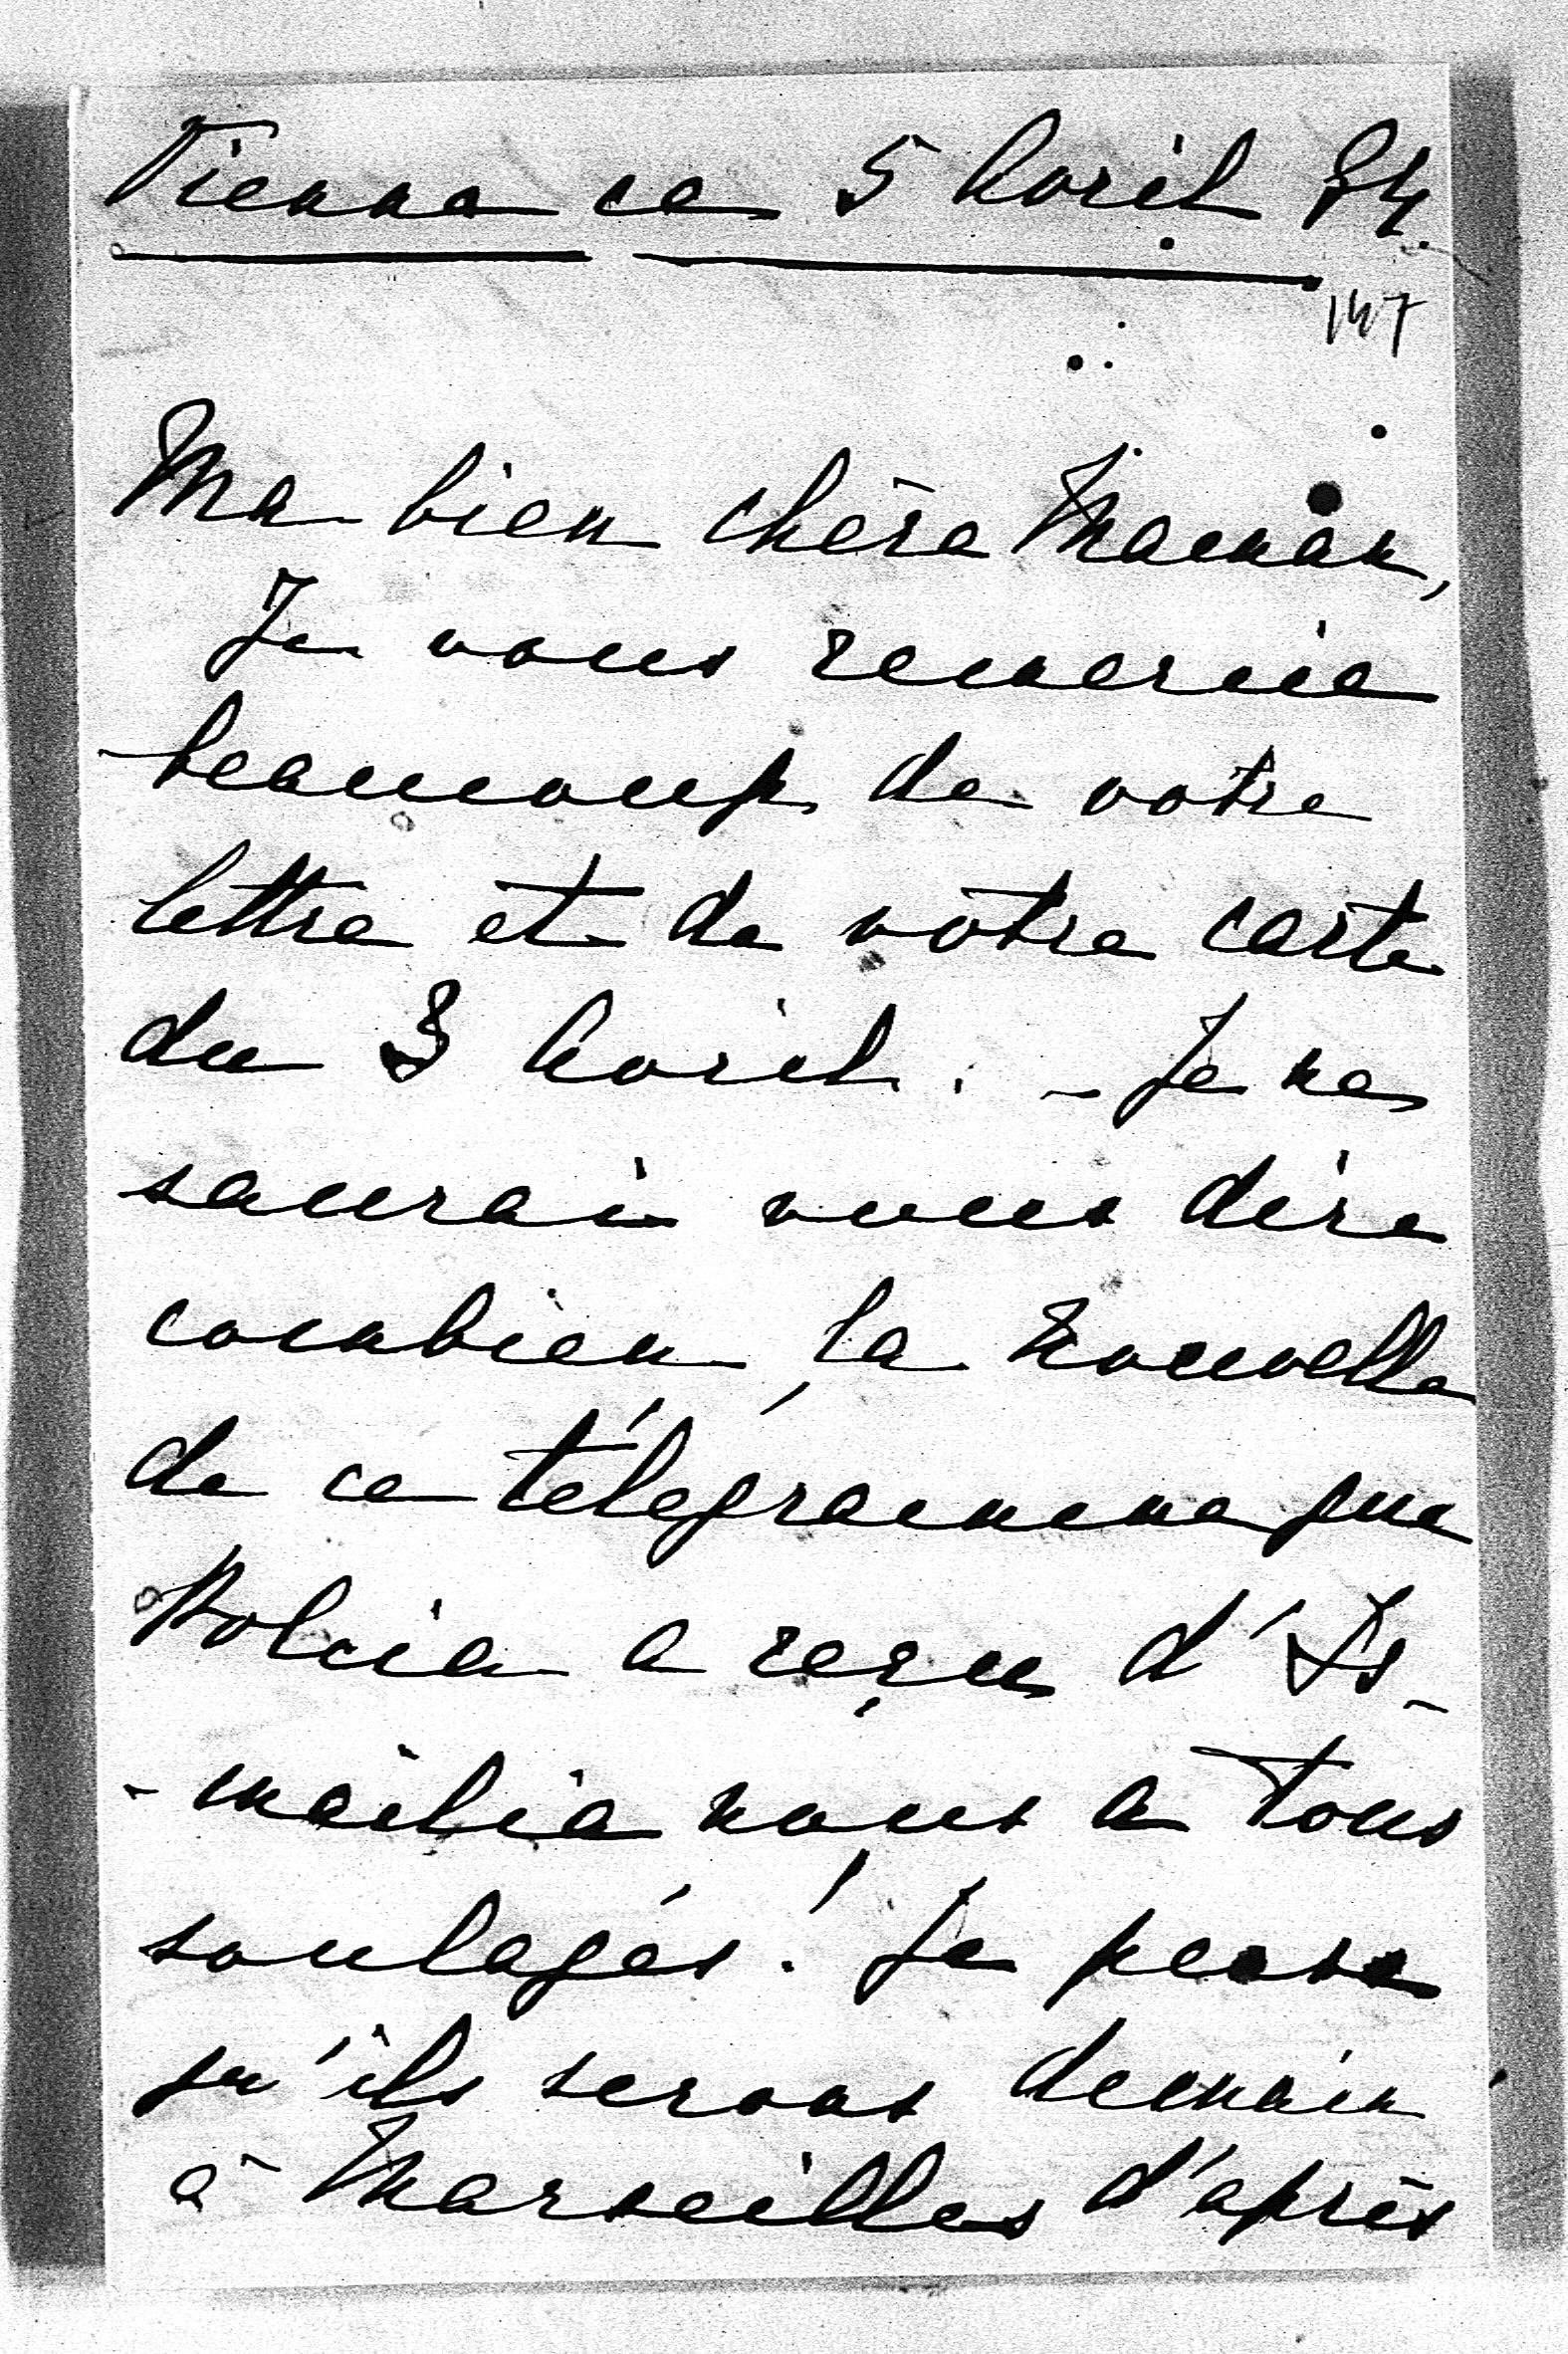 Vienne ce 5 Avril 84.
147
Ma bien chère Maman,
Je vous remercie
beaucoup de votre
lettre et de votre carte
du 3 Avril. - Je ne
saurais vous dire
combien la nouvelle
de ce télégramme que
a reçu d'Is-
-mailia nous a tous
soulagés! Je pense
qu'ils serons demain
à Marseilles d'après